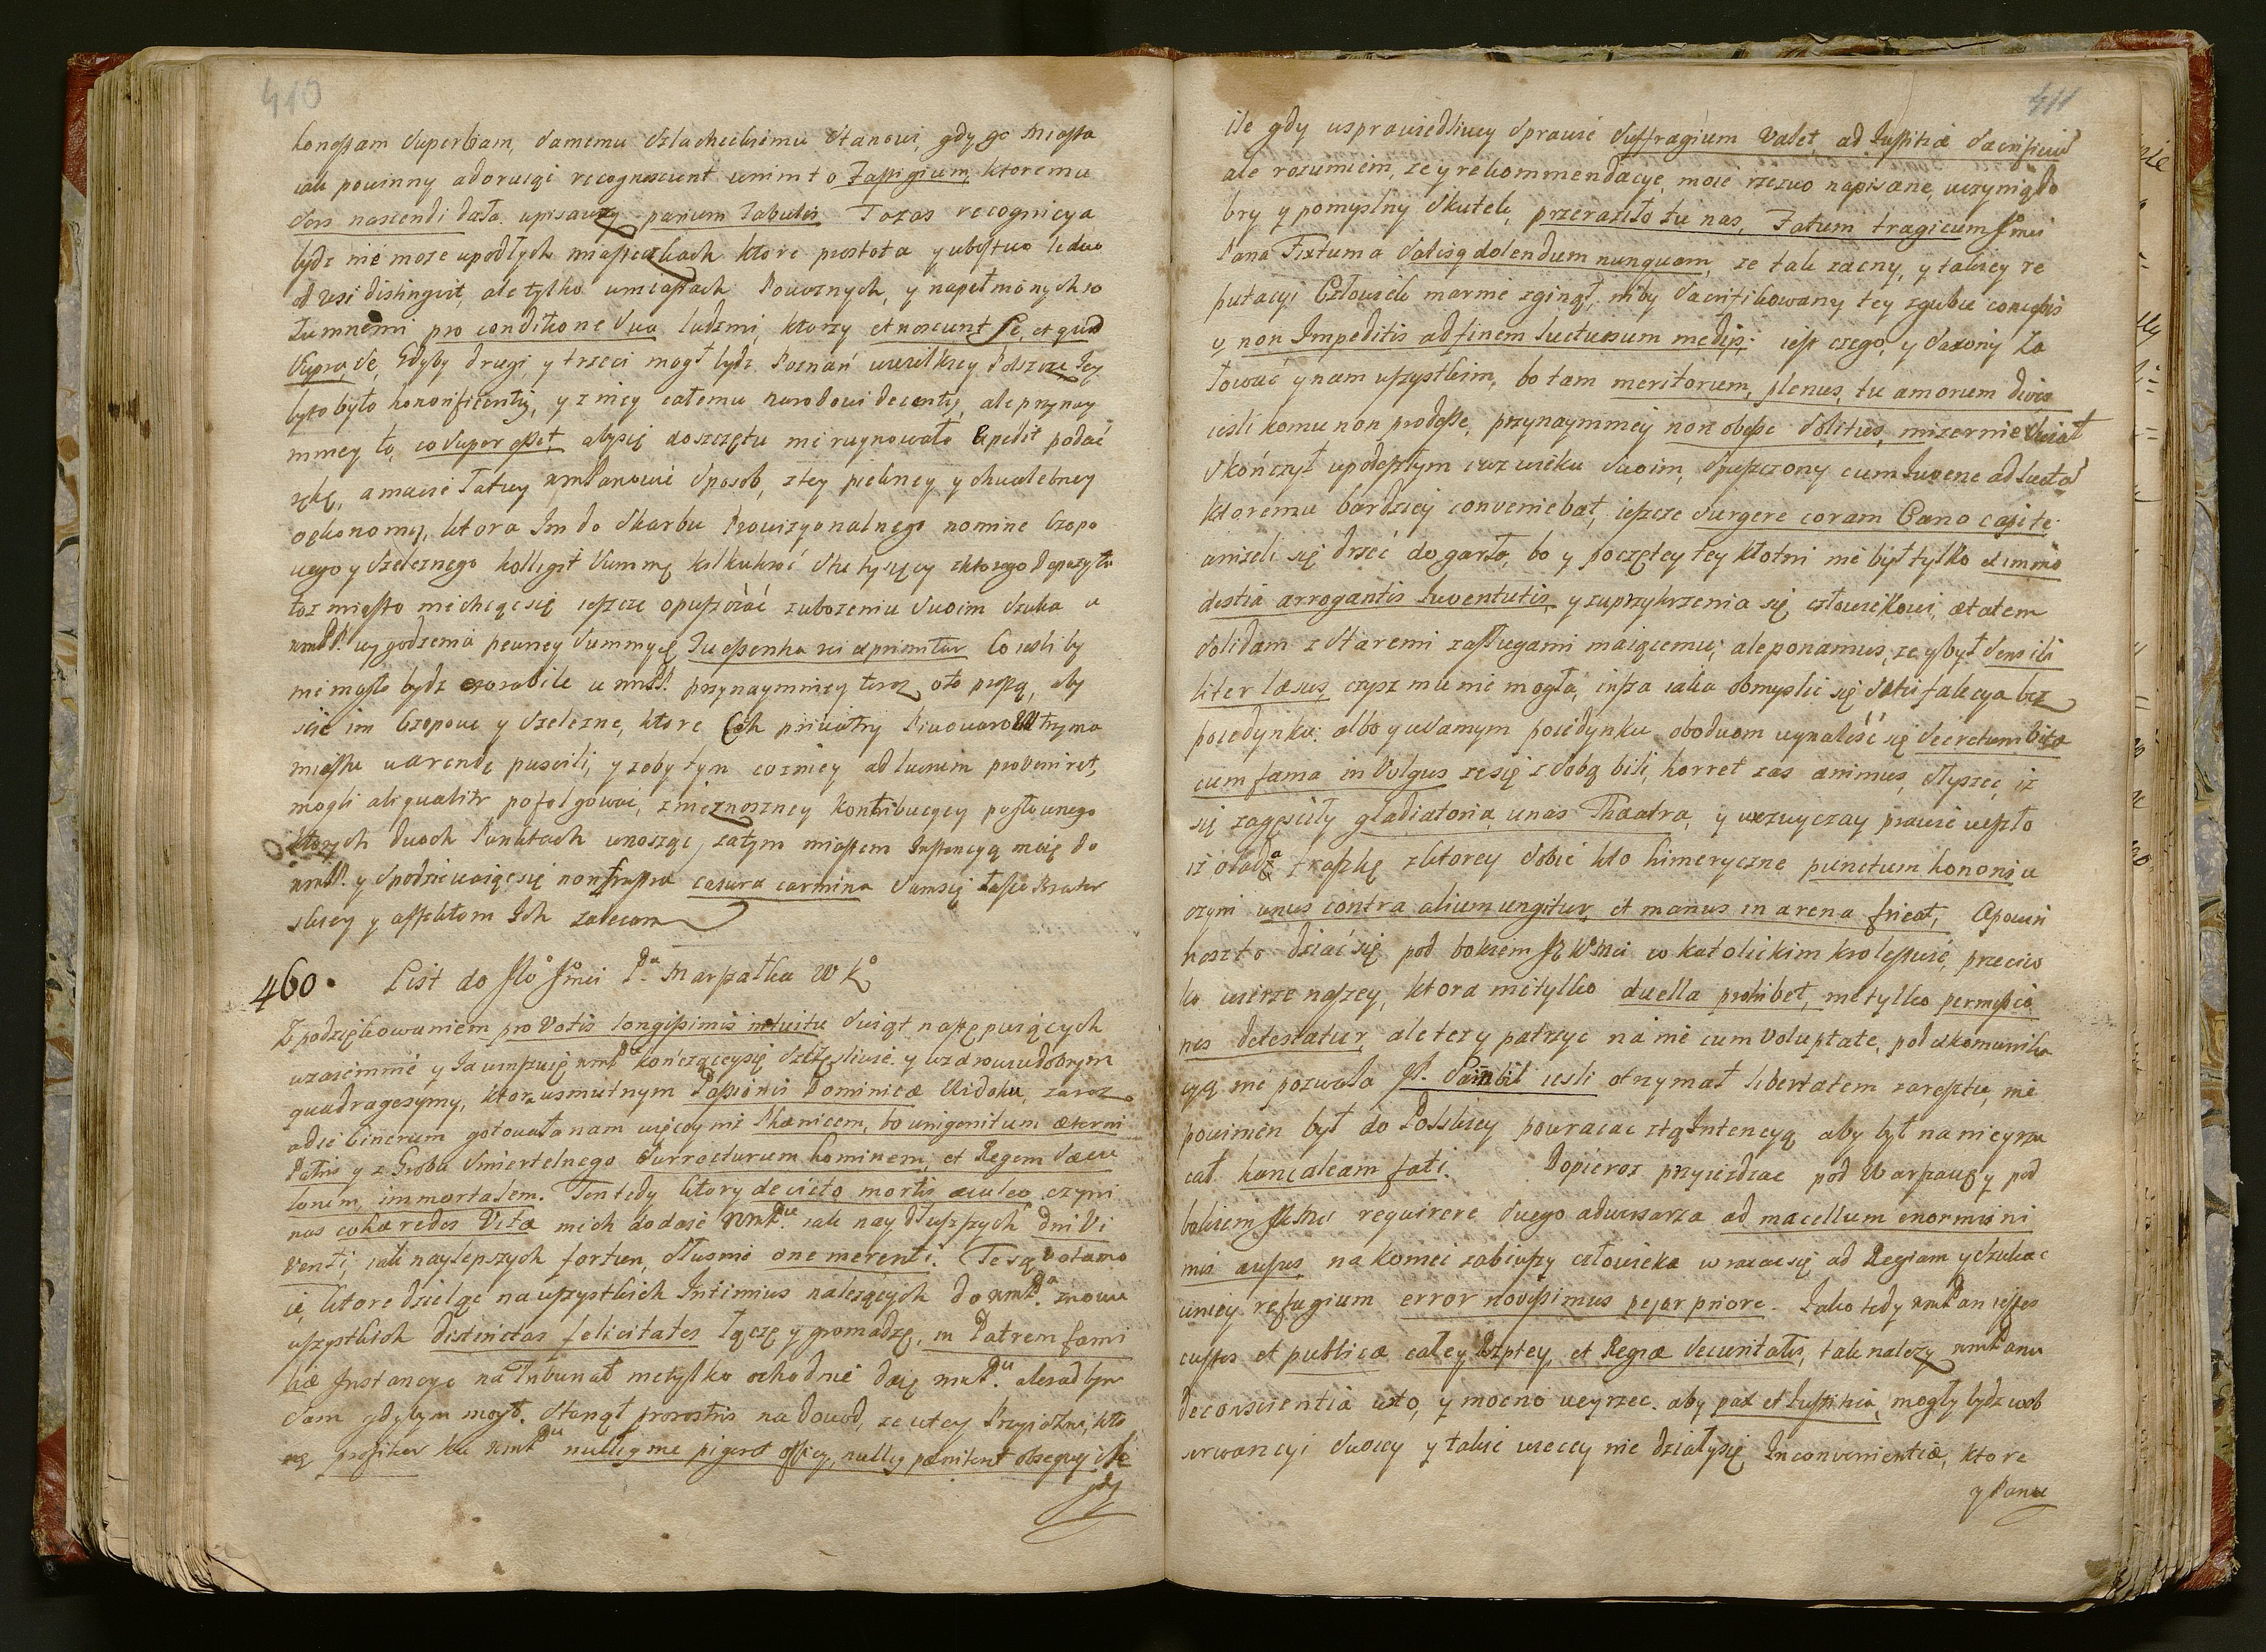 410
honestam Superbiam, samemu Szlacheckiemu Stanowi, gdy go Miasta
iak powinny adorucąi recognoscunt unim to Fastigium, ktoremu
Sors nascendi dała upisawszy parium Tabulis Tazas recognicya
bydz nie moze upodłych miasteczkach ktore prostota y ubostwo ledwo
od wsi distingvit, ale tylko wmiastach Powaznych, y napełnionych ro
zumnemi pro conditione sua ludzmi, ktorzy et noscunt se, et quid
supra se, Gdyby drugi y trzeci mogł bydz Poznań wwielkiey Polszcze, Jey
byto było honorificentiq, y z niey całemu narodowi decentiq, ale przynay
mniey to, co super esset, abysię doszczętu nie ruynowało Expedit podać
rękę, a macie Tatwy wmPanowie sposob, z tey piekney y chwalebney
oekonomij, ktora Im do Skarbu Prowizyonalnego nomine Czopo
wego y Szelęznego kolligit Summę kilkukroć Stu tysięcy zktorego Depozytu
toz miasto niechcąc się ieszcze opuszczać zubozeniu swoim Szuka u
wmPP. wygodzenia pewney Summy
Co iesli by
nie miało bydz exorabile u wmPP. przynaymniey teraz oto proszą, aby
scie im Czopowe y Szelezne, ktore
miastu warendę puscili, y zeby tym cozniey ad lucrum proveniret,
mogli aliqualiter pofolgować, znieznoszney kontribucyey pogłownego
Oktorych dwoch Punktach wnosząc zatym miastem Instancyą moię do
wmPP. y spodziewaiąc się non frustra casura carmina samsię łasce Brater
skiey y affektom Ich zalecam
460. List do Jło Jmci Pa Marszałka W K
Z podziękowaniem pro Votis longissimis intuitu swiąt następuiących
wzaiemnie y Ja winszuię wmPu kończącey się szczęsliwie y wzdrowiu dobrym
quadragesymy, ktora wsmutnym Passionis Dominicæ Widoku, zaraz
adie Cinerum gotowała nam więcey niz Phænicem, bo unigenitum æterni
Patris y z Groba smiertelnego surrecturum hominem, et Regem Sæcu
lorum, immortalem. Ten tedy ktory devicto mortis aculeo czyni
nas cohæredes Vitæ niech dodaie wmPu. iak naydłuzszych dni Vi
venti, iak naylepszych fortun, słusnie one merenti. Te są Vota mo
ie, ktore dzieląc na wszystkich Intimius nalezących do wmPa. znowu
wszystkich distinctas felicitates łączę y gromadzę, in Patrem fami
liæ Instancye na Trybunał nietylko ochodnie daię wmPu. ale radbym
sam gdybym mogł. Stanął prorostris na dowod, ze w tey Przyiazni, kto
rą profiteor ku wmPu nullig me pigeret officij, nullig pænitent obsequij ile
gdy
411
ile gdy usprawiedliwey sprawie suffragium valet, ad Iustitiæ Sacrificiu
ale rozumiem, ze y rekommendacye, moie rzezwo napisane, uczynią do
bry y pomyslny skutek, przeraziło tu nas, Fatum tragicum Jmci
Pana Fixtuma Satisq dolendum nunquam, ze tak zacny, y takiey re
putacyi Człowiek marnie zginął, niby sacrifikowany tey zgubie conceptis
q non Impeditis ad finem luctuosum medijs: iest czego, y Saxony Za
łować y nam wszystkim, bo tam meritorum, plenus, tu amorum dives
iesli komu non prodesse, przynaymniey non obesse Solitus, mizernie Swiat
skończył upodeszłym iuz wieku swoim, spuszczony cum Iuvene ad lucta
ktoremu bardziey conveniebat, ieszcze surgere coram Cano capite
anizeli się drzeć do garła, bo y poczętey tey kłotni nie był tylko ex immo
destia arrogantis Iuventutis, y zuprzykrzenia się człowiekowi, ætatem
solidam z Staremi zasługami maiącemu; ale ponamus, ze y był sensibi
liter læsus, czysz mu nie mogła, insza iaka obmyslic się satisfakcya bez
poiedynku: albo y w samym poiedynku obodwom wynaleść się secretum Cito
cum fama in Vulgus ze się z sobą bili, horret zas animus, słyszeć, iz
się zagęsciły gladiatoria unas Theatra, y wzwyczay prawie weszło
iz oladą fraszkę zktorey sobie kto himeryczne punctum honoris u
czyni unus contra alium ungitur, et manus in arena fricat, Apowin
noszto dziać się pod bokiem JKMci w katolickim krolestwie, przeciw
ko wierze naszey, ktora nietylko duella prohibet, nietylko permissio
nes detestatur, ale tez y patrzyc na nie cum Voluptate, pod exkomunika
cyą nie pozwala JP. Saintbil iesli otrzymał libertatem zaresztu, nie
powinien był do Polskiey powracac ztą Intencyą aby był na niey rzu
cał hanc aleam fati. Dopieroz przyiezdzac pod Warszawę y pod
bokiem JKMci requirere swego adwersarza ad macellum enormis ni
mis ausus, na koniec zabiwszy człowieka wracac się ad Regiam y szukac
wniey refugium error novissimus pejor priore. Jako tedy wmPan iestes
custos et publicæ całey Rzptey, et Regiæ Securitatis, tak nalezy wmPanu
de conscientia wto, y mocno weyrzec. aby pax et Iustitia, mogły bydz wob
serwancyi swoiey y takie wiecey nie działysię Inconvenientiæ, ktore
y Panu